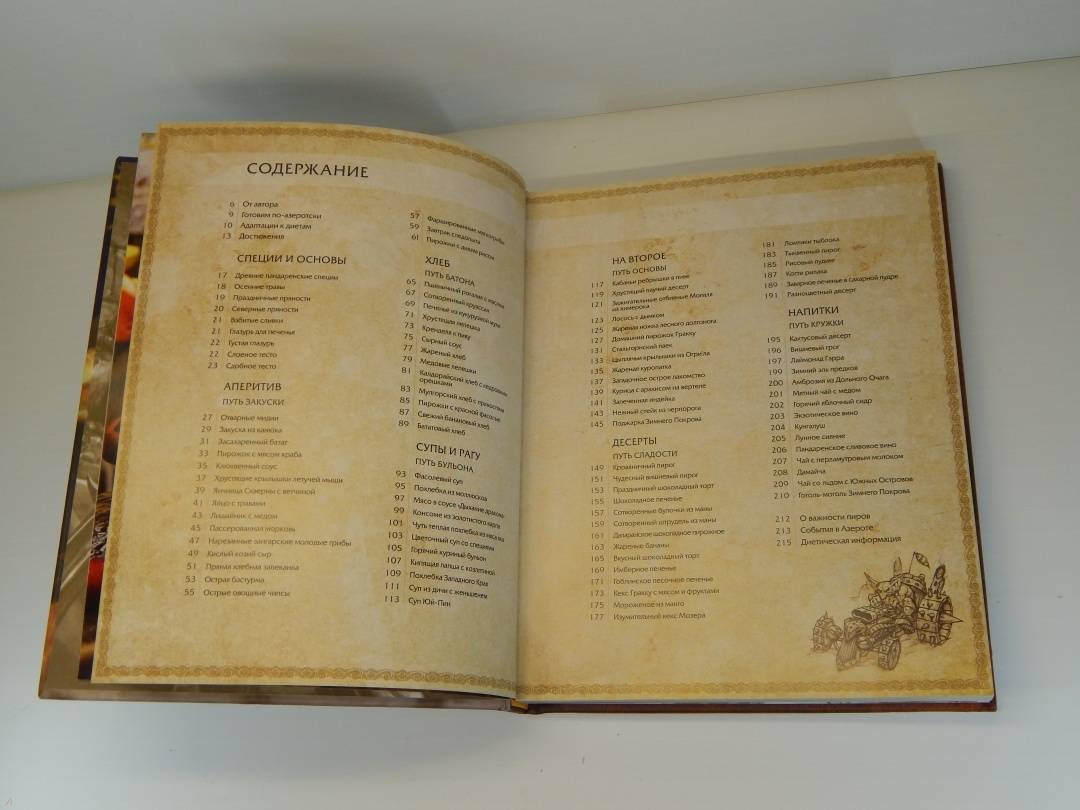 СОДЕРЖАНИЕ
6 От автора
9 Готовим по-азеротски
10 Адаптации к диетам
13 Достижения
СПЕЦИИ И ОСНОВЫ
17 Древние пандаренские специи
18 Осенние травы
19 Праздничные пряности
20 Северные пряности
21 Взбитые сливки
21 Глазурь для печенья
22 Густая глазурь
22 Слоеное тесто
23 Сдобное тесто
АПЕРИТИВ
ПУТЬ ЗАКУСКИ
27 Отварные мидии
29 Закуска из канюка
31 Засахаренный батат
33 Пирожок с мясом краба
35 Клюквенный соус
37 Хрустящие крылышки летучей мыши
39 Яичница Скверны с ветчиной
41 Яйцо с травами
43 Лишайник с медом
45 Пассерованная морковь
47 Нарезанные зангарские молодые грибы
49 Кислый козий сыр
51 Пряная хлебная запеканка
53 Острая бастурма
55 Острые овощные чипсы
57 Фаршированные
59 Завтрак следопыта
61 Пирожки с диким рисом
ХЛЕБ
ПУТЬ БАТОНА
65 Пшеничный рогалик с маслом
67 Сотворенный круассан
69 Печенье из кукурузной муки
71 Хрустящая лепешка
73 Крендели к пиву
75 Сырный соус
77 Жареный хлеб
79 Медовые лепешки
81 Калдорайский хлеб с кедровыми
орешками
83 Мулгорский хлеб с пряностями
85 Пирожки с красной фасолью
87 Свежий банановый хлеб
89 Бататовый хлеб
СУПЫ И РАГУ
ПУТЬ БУЛЬОНА
93 Фасолевый суп
95 Похлебка из моллюсков
97 Мясо в соусе «Дыхание дракона»
99 Консоме из золотистого карпа
101 Чуть теплая похлебка из мяса яка
103 Цветочный суп со специями
105 Горячий куриный бульон
107 Кипящая лапша с козлятиной
109 Похлебка Западного Края
111 Суп из дичи с женьшенем
113 Суп Юй-Пин
НА ВТОРОЕ
ПУТЬ ОСНОВЫ
117 Кабаньи ребрышки в пиве
119 Хрустящий паучий десерт
121 Зажигательные отбивные Мопаля
из химерока
123 Лосось с дымком
125 Жареная ножка лесного долгонога
127 Домашний пирожок Гракку
131 Стальгорнский паек
133 Цыплячьи крылышки из Огрила
135 Жареная куропатка
137 Загадочное острое лакомство
139 Курица с арахисом на вертеле
141 Запеченная индейка
143 Нежный стейк из черпорога
145 Поджарка Зимнего Покрова
ДЕСЕРТЫ
ПУТЬ СЛАДОСТИ
149 Кромарничный пирог
151 Чудесный вишневый пирог
153 Праздничный шоколадный торт
155 Шоколадное печенье
157 Сотворенные булочки из маны
159 Сотворенный штрудель из маны
161 Даларанское шоколадное пирожное
163 Жареные бананы
165 Вкусный шоколадный торт
169 Имбирное печенье
171 Гоблинское песочное печенье
173 Кекс Гракку с мясом и фруктами
175 Мороженое из манго
177 Изумительный кекс Мозера
181 Ломтики тыблока
183 Тыквенный пирог
185 Рисовый пудинг
187 Когти рилака
189 Заварное печенье в сахарной пудре
191 Разноцветный десерт
НАПИТКИ
ПУТЬ КРУЖКИ
195 Кактусовый десерт
196 Вишневый грог
197 Лаймонад Гарра
199 Зимний эль предков
200 Амброзия из Дольного Очага
201 Мятный чай с медом
202 Горячий яблочный сидр
203 Экзотическое вино
204 Кунгалуш
205 Лунное сияние
206 Пандаренское сливовое вино
207 Чай с перламутровым молоком
208 Дамайча
209 Чай со льдом с Южных Островов
210 Гоголь-моголь Зимнего Покрова
212 О важности пиров
213 События в Азероте
215 Диетическая информация